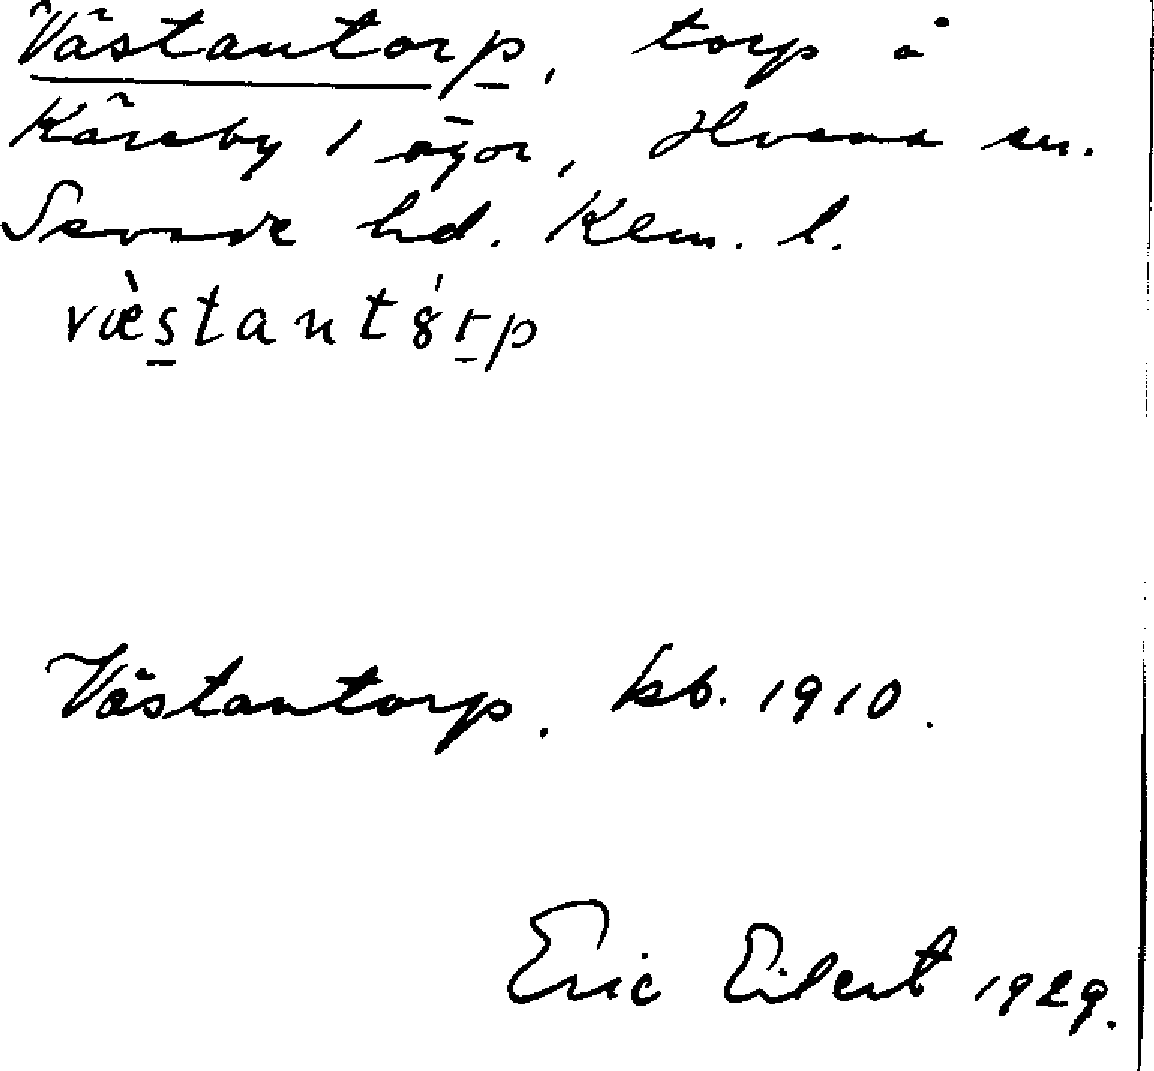 Västantorp, torp å
Käreby 1 ägor, Hvena sn.
Sevede hd. Kalm. l.
væ̀s̲tantȣ́r̲p
Västantorp. kb. 1910.
Eric Eilert 1929.